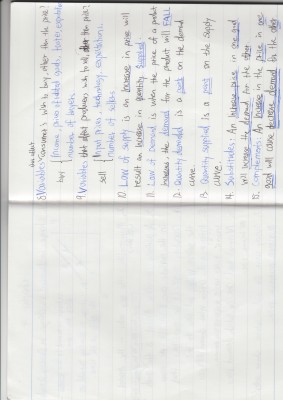 that affect
8. Variables consumers wish to buy, other than the price?
Income, price of related goods, tastes, expectations
buy number of buyers
9. Variables that affect producers wish to sell, other than price?
Input prices, technology, expectations,
sell number of sellers
10. Law of supply is an increase in price will
result an increase in quantity supplied
11. Law of Demand is when the price of a product
increases, the demand for the product will FALL
12. Quantity demanded is a point on the demand
curve.
13. Quantity supplied is a point on the supply
curve.
14. Substitutes: An increase in one good
will increase the demand for the other
15. Complements: An increase in the price in one
good will cause decrease demand in the other